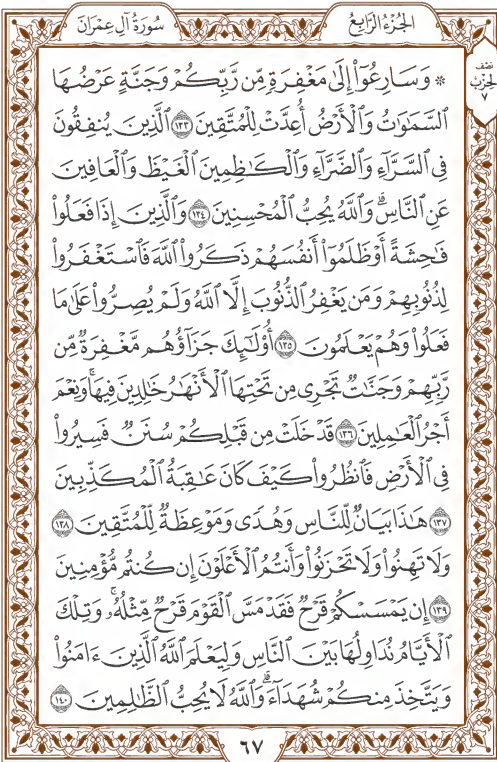 سُورَةُ آلِ عِمْرَانَ
الجُزْءُ الرَّابِعُ
نصف
الحزب
٧
۞ وَسَارِعُوٓاْ إِلَىٰ مَغْفِرَةٍ مِّن رَّبِّكُمْ وَجَنَّةٍ عَرْضُهَا
ٱلسَّمَٰوَٰتُ وَٱلْأَرْضُ أُعِدَّتْ لِلْمُتَّقِينَ ١٣٣ ٱلَّذِينَ يُنفِقُونَ
فِى ٱلسَّرَّآءِ وَٱلضَّرَّآءِ وَٱلْكَٰظِمِينَ ٱلْغَيْظَ وَٱلْعَافِينَ
عَنِ ٱلنَّاسِ ۗ وَٱللَّهُ يُحِبُّ ٱلْمُحْسِنِينَ ١٣٤ وَٱلَّذِينَ إِذَا فَعَلُواْ
فَٰحِشَةً أَوْ ظَلَمُوٓاْ أَنفُسَهُمْ ذَكَرُواْ ٱللَّهَ فَٱسْتَغْفَرُواْ
لِذُنُوبِهِمْ وَمَن يَغْفِرُ ٱلذُّنُوبَ إِلَّا ٱللَّهُ وَلَمْ يُصِرُّواْ عَلَىٰ مَا
فَعَلُواْ وَهُمْ يَعْلَمُونَ ١٣٥ أُوْلَٰٓئِكَ جَزَآؤُهُم مَّغْفِرَةٌ مِّن
رَّبِّهِمْ وَجَنَّٰتٌ تَجْرِى مِن تَحْتِهَا ٱلْأَنْهَٰرُ خَٰلِدِينَ فِيهَا ۚ وَنِعْمَ
أَجْرُ ٱلْعَٰمِلِينَ ١٣٦ قَدْ خَلَتْ مِن قَبْلِكُمْ سُنَنٌ فَسِيرُواْ
فِى ٱلْأَرْضِ فَٱنظُرُواْ كَيْفَ كَانَ عَٰقِبَةُ ٱلْمُكَذِّبِينَ
١٣٧ هَٰذَا بَيَانٌ لِّلنَّاسِ وَهُدًى وَمَوْعِظَةٌ لِّلْمُتَّقِينَ ١٣٨
وَلَا تَهِنُواْ وَلَا تَحْزَنُواْ وَأَنتُمُ ٱلْأَعْلَوْنَ إِن كُنتُم مُّؤْمِنِينَ
١٣٩ إِن يَمْسَسْكُمْ قَرْحٌ فَقَدْ مَسَّ ٱلْقَوْمَ قَرْحٌ مِّثْلُهُۥ ۚ وَتِلْكَ
ٱلْأَيَّامُ نُدَاوِلُهَا بَيْنَ ٱلنَّاسِ وَلِيَعْلَمَ ٱللَّهُ ٱلَّذِينَ ءَامَنُواْ
وَيَتَّخِذَ مِنكُمْ شُهَدَآءَ ۗ وَٱللَّهُ لَا يُحِبُّ ٱلظَّٰلِمِينَ ١٤٠
٦٧